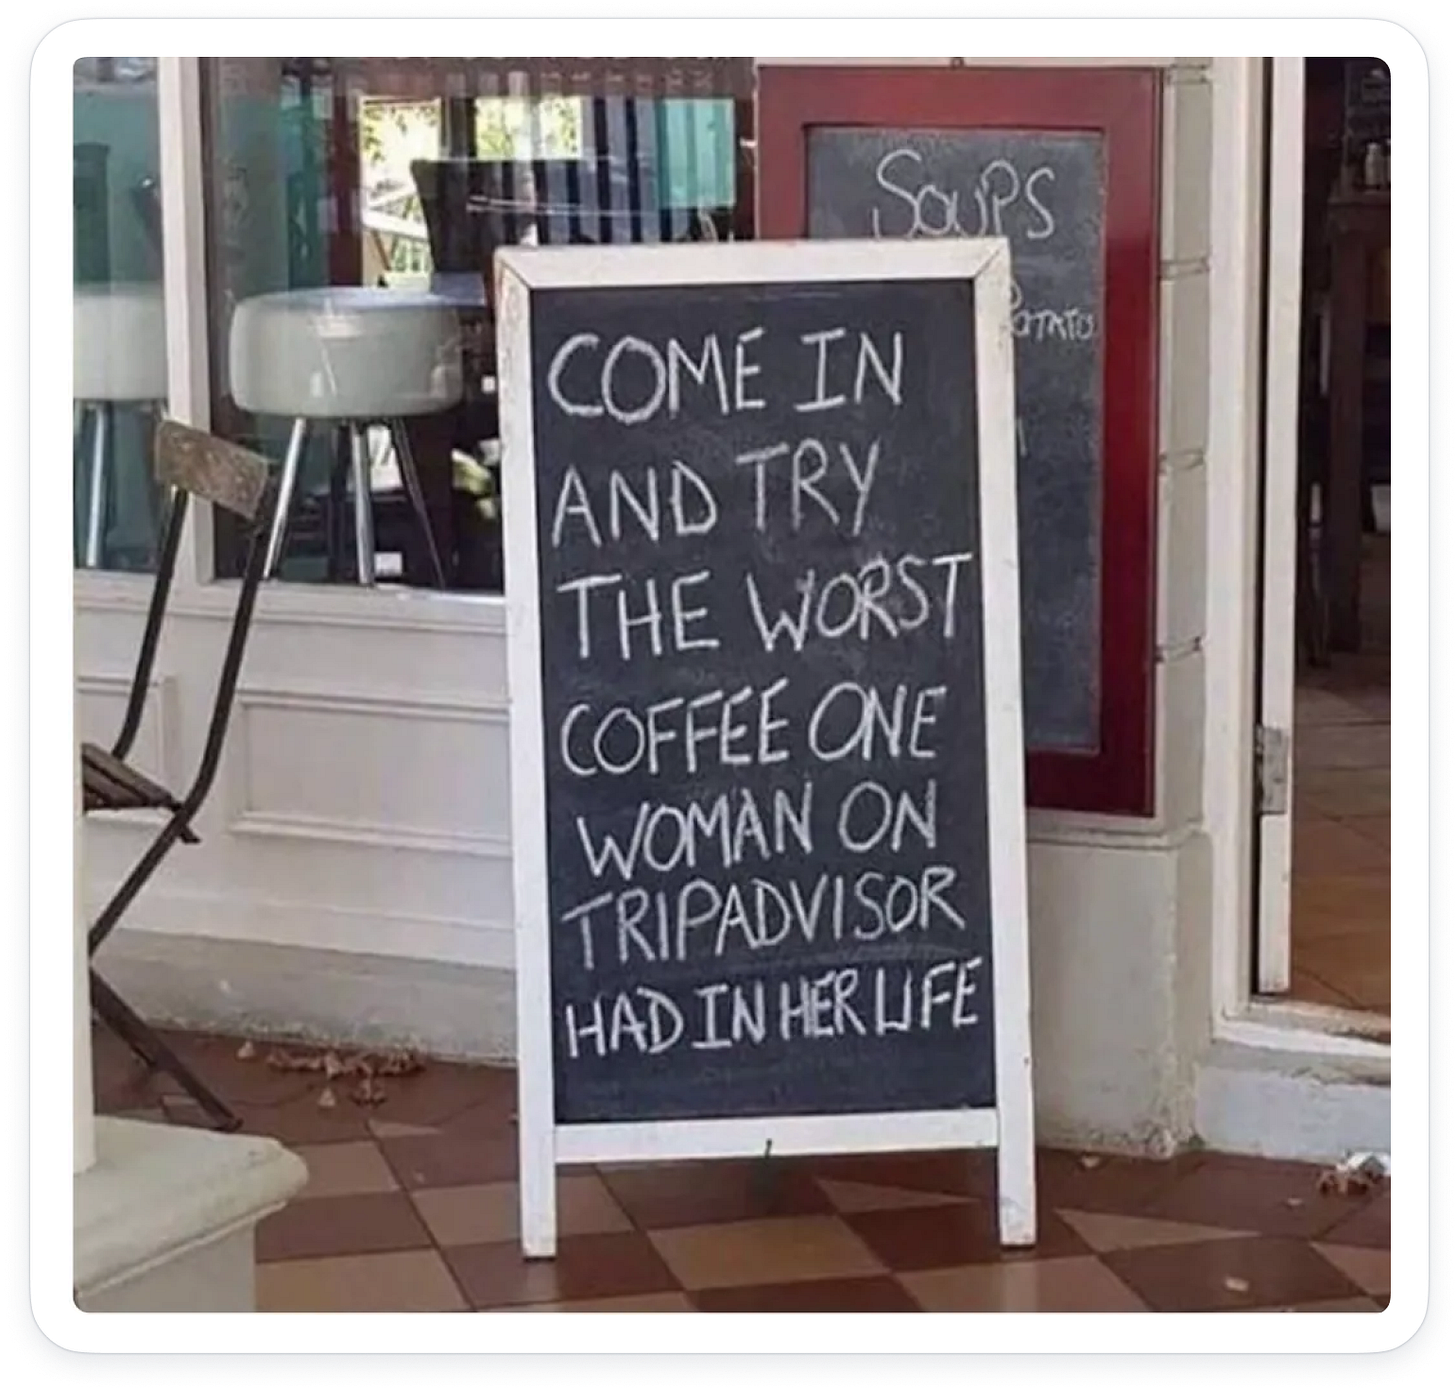 COME IN
AND TRY
THE WORST
COFFEE ONE
WOMAN ON
TRIPADVISOR
HAD IN HER LIFE
SOUPS